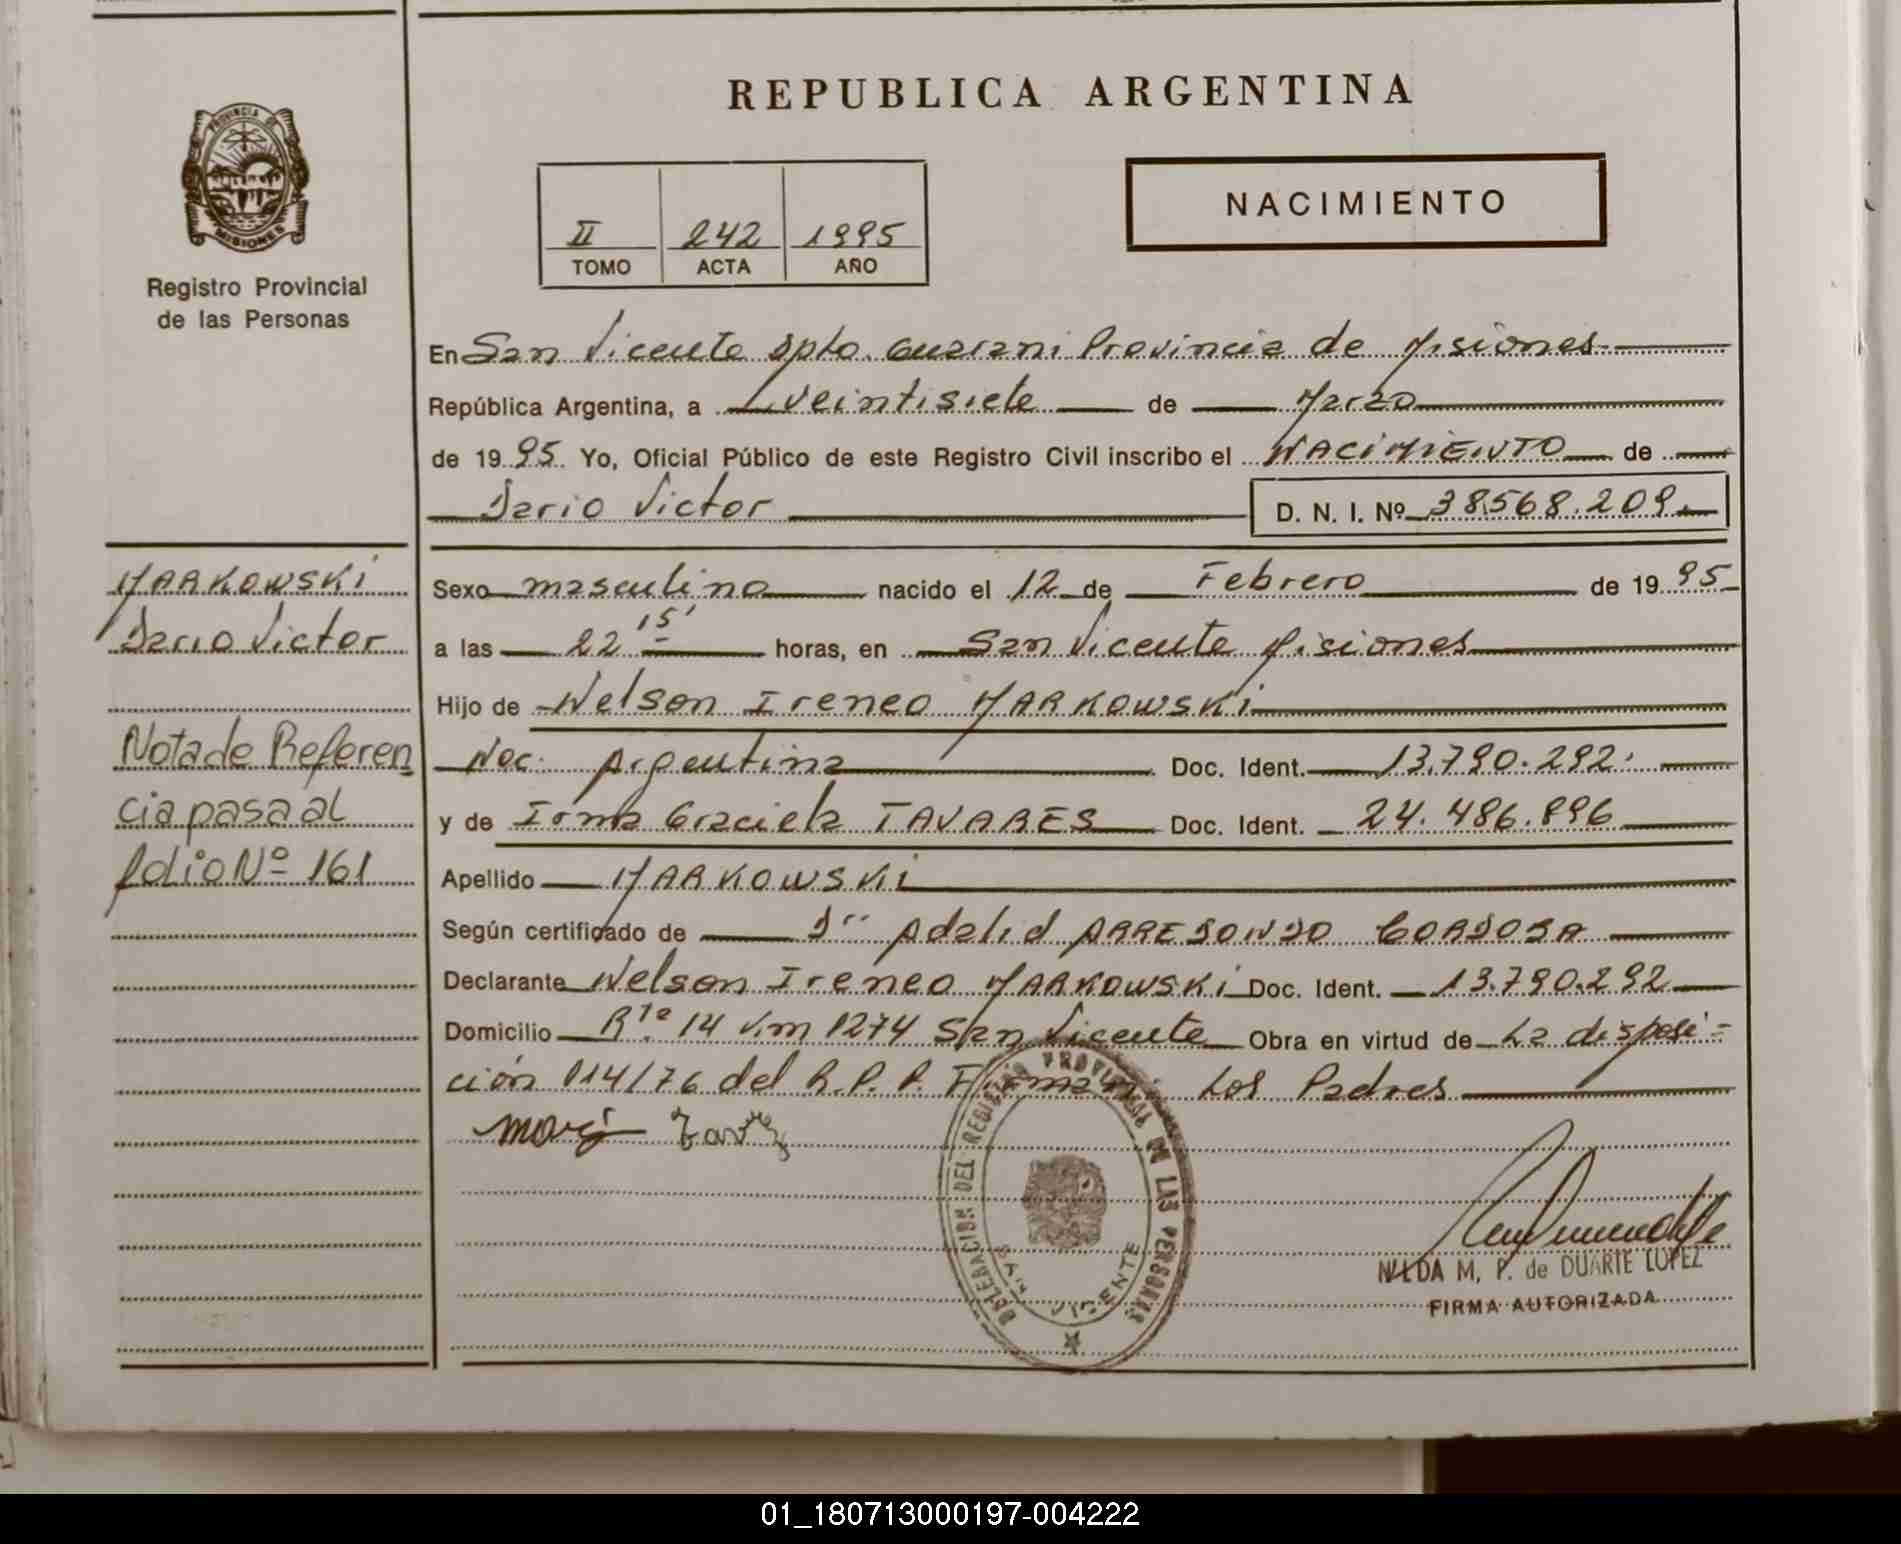 REPUBLICA ARGENTINA
PROVINCIA DE
MISIONES
Registro Provincial
de las Personas
II 242 1995
TOMO ACTA AÑO
NACIMIENTO
En San Vicente Dpto. Guarani Provincia de Misiones
República Argentina, a veintisiete de Marzo
de 1995 Yo, Oficial Público de este Registro Civil inscribo el NACIMIENTO de
Dario Victor D. N. I. Nº 38.568.209
MARKOWSKI
Dario Victor
Nota de Referen
cia pasa al
folio Nº 161
Sexo masculino nacido el 12 de Febrero de 1995
a las 22 15' horas, en San Vicente Misiones
Hijo de Nelson Ireneo MARKOWSKI
Nac. Argentina Doc. Ident. 13.790.292
y de Irma Graciela TAVARES Doc. Ident. 24.486.896
Apellido MARKOWSKI
Según certificado de Adalid ARREDONDO CORDOBA
Declarante Nelson Ireneo MARKOWSKI Doc. Ident. 13.790.292
Domicilio Rta 14 Km 1274 San Vicente Obra en virtud de La disposi-
ción 014/76 del R.P.P. Firman Los Padres
DELEGACION DEL REGISTRO PROVINCIAL DE LAS PERSONAS
SAN VICENTE
NILDA M. P. de DUARTE LOPEZ
FIRMA AUTORIZADA
01_180713000197-004222